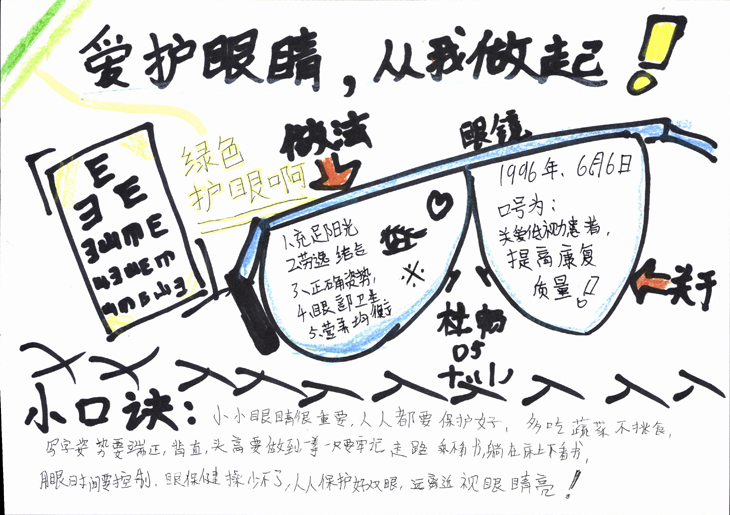 爱护眼睛，从我做起！
做法
眼镜
绿色
护眼啊
E
E
E
1.充足阳光
2.劳逸结合
3.正确姿势,
4.眼部卫生
5.营养均衡
1996年、6月6日
口号为:
关爱低视力患者,
提高康复
质量!!
关于
小口诀:
小小眼睛很重要,人人都要保护好,多吃蔬菜不挑食,
写字姿势要端正,背直,头高要做到 牢记走路不看书,躺在床上不看书,
用眼时间要控制,眼保健操少不了,人人保护好双眼,远离近视眼睛亮!